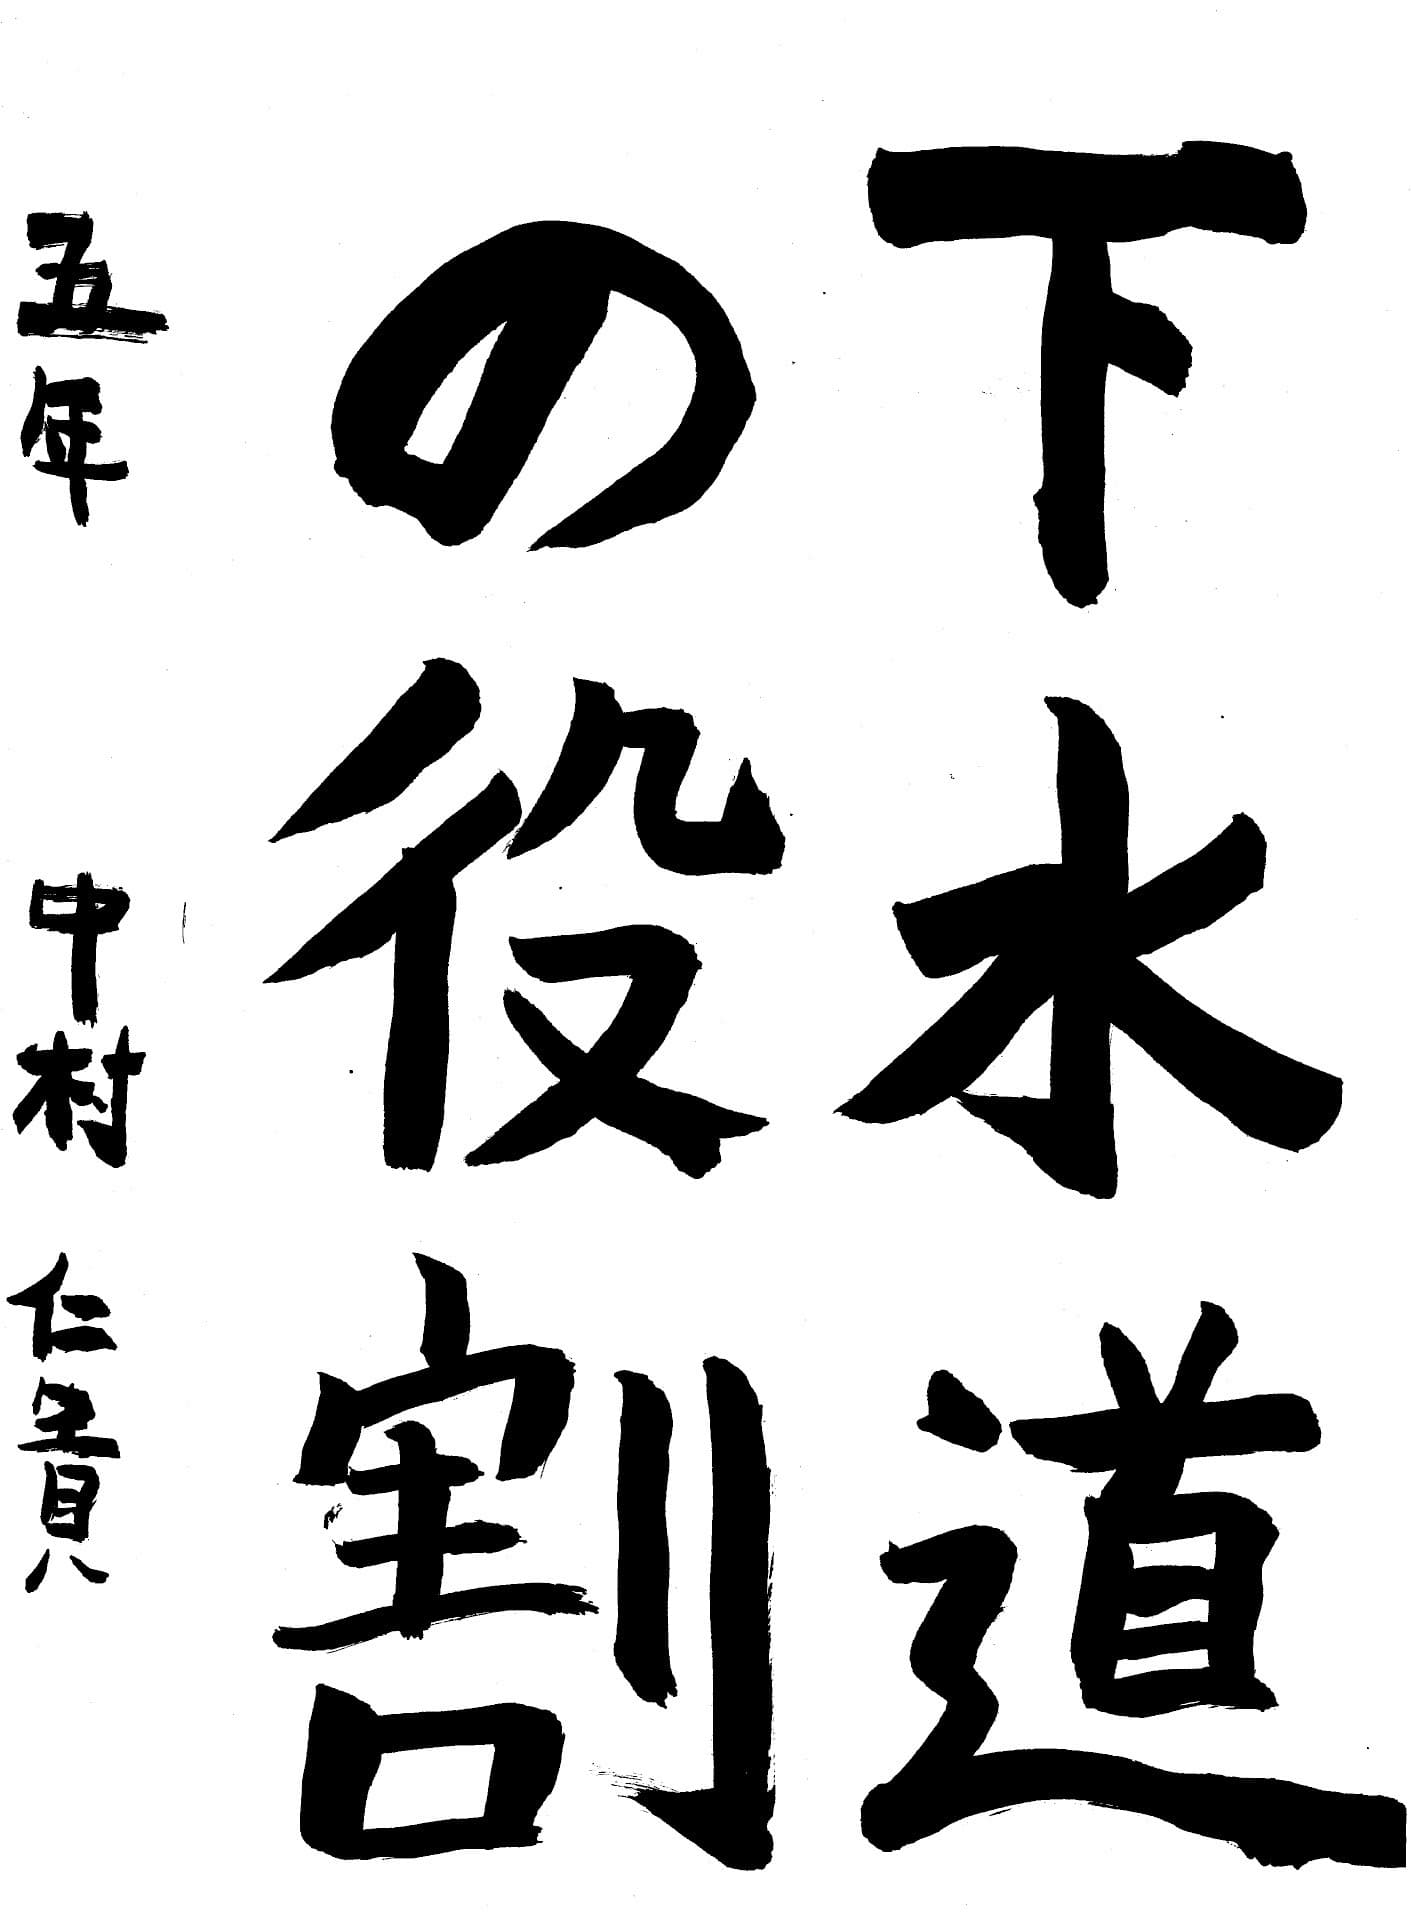 下水道
の役割
五年 中村 仁貴